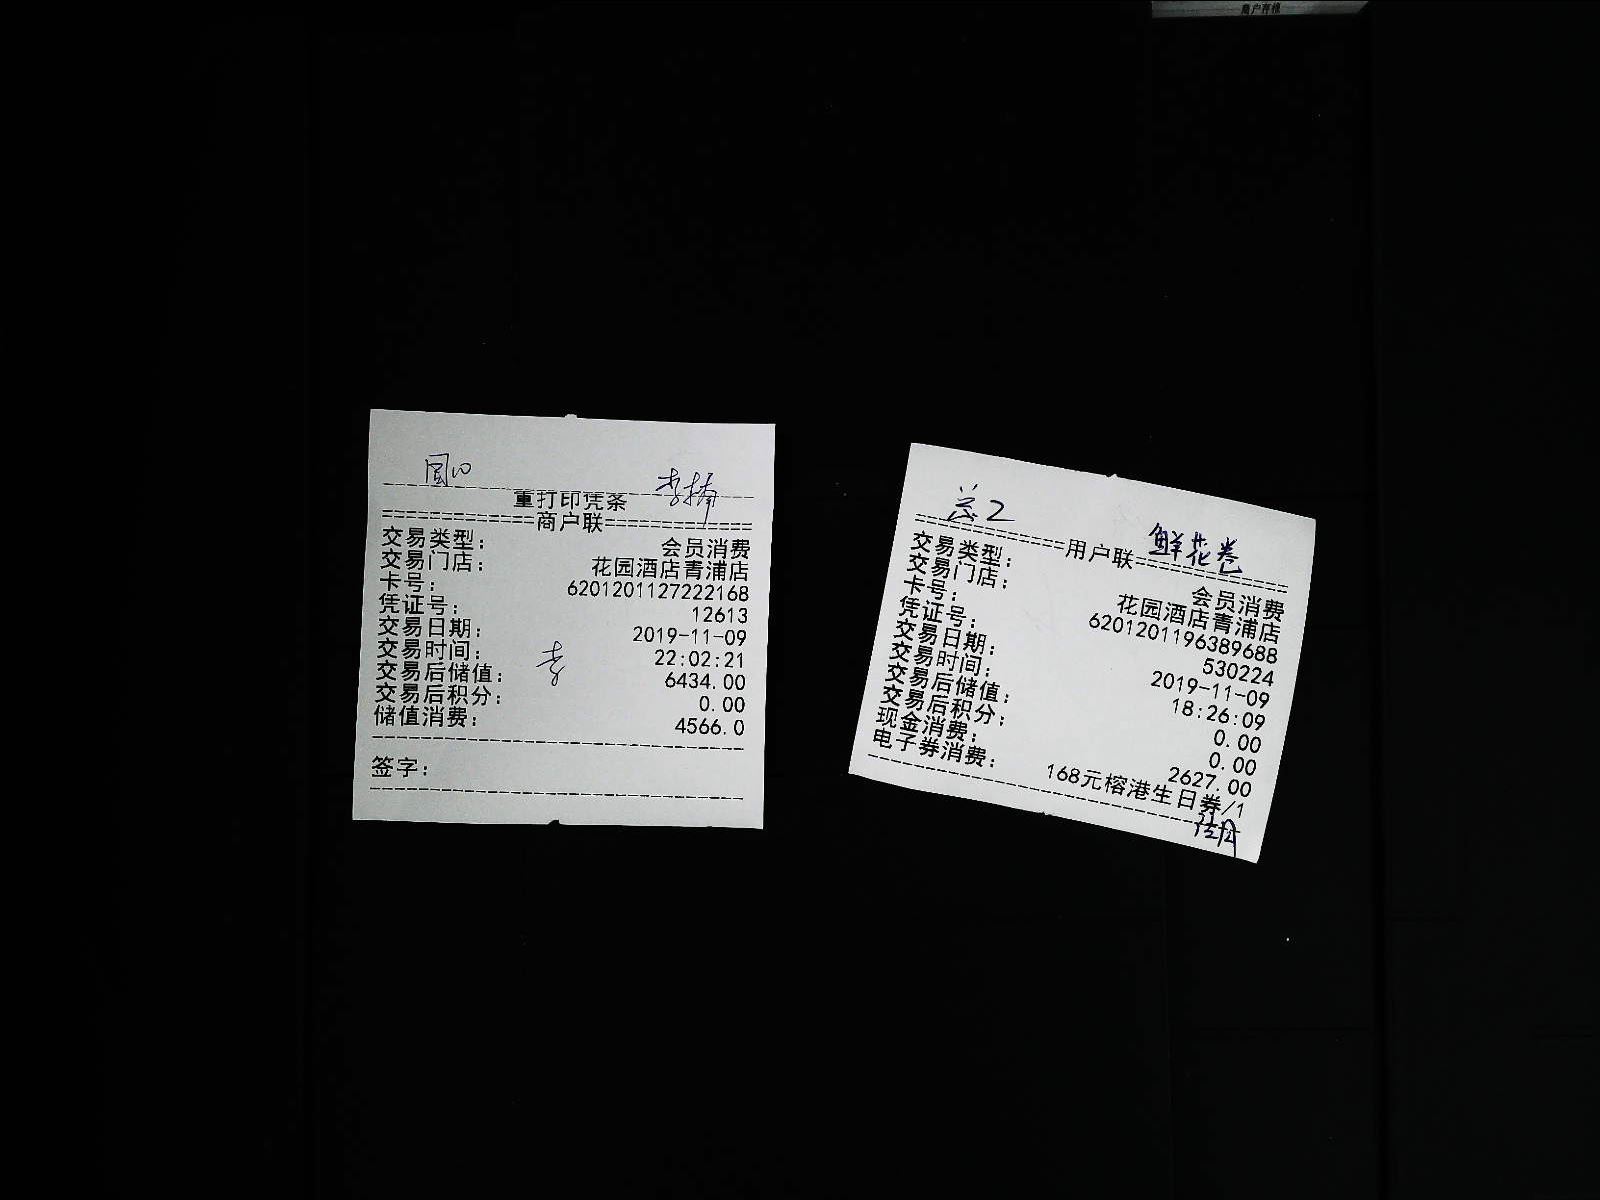 重打印凭条
==============商户联==============
交易类型： 会员消费
交易门店： 花园酒店青浦店
卡号： 6201201127222168
凭证号： 12613
交易日期： 2019-11-09
交易时间： 22:02:21
交易后储值： 6434.00
交易后积分： 0.00
储值消费： 4566.0
签字：
鲜花卷
==============用户联==============
交易类型： 会员消费
交易门店： 花园酒店青浦店
卡号： 6201201196389688
凭证号： 530224
交易日期： 2019-11-09
交易时间： 18:26:09
交易后储值： 0.00
交易后积分： 0.00
现金消费： 2627.00
电子券消费： 168元榕港生日券/1